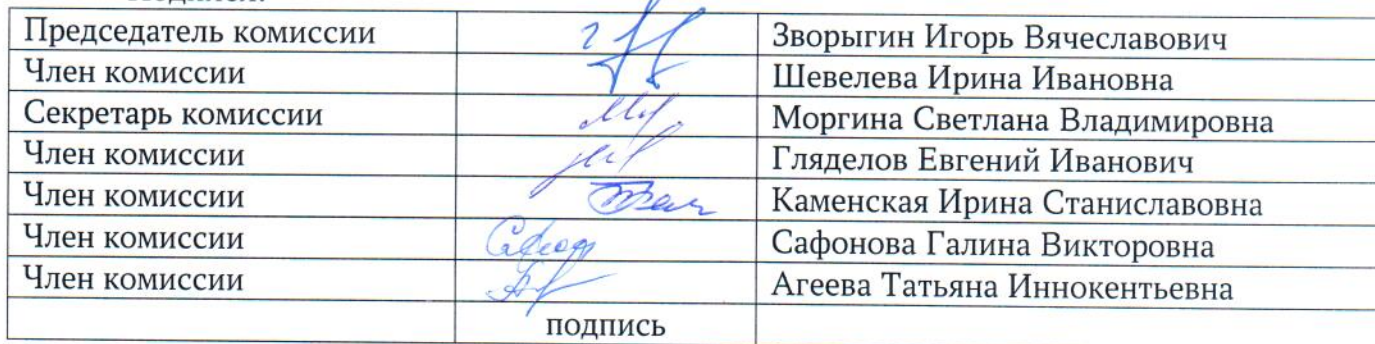 Председатель комиссии Зворыгин Игорь Вячеславович
Член комиссии Шевелева Ирина Ивановна
Секретарь комиссии Моргина Светлана Владимировна
Член комиссии Гляделов Евгений Иванович
Член комиссии Каменская Ирина Станиславовна
Член комиссии Сафонова Галина Викторовна
Член комиссии Агеева Татьяна Иннокентьевна
подпись